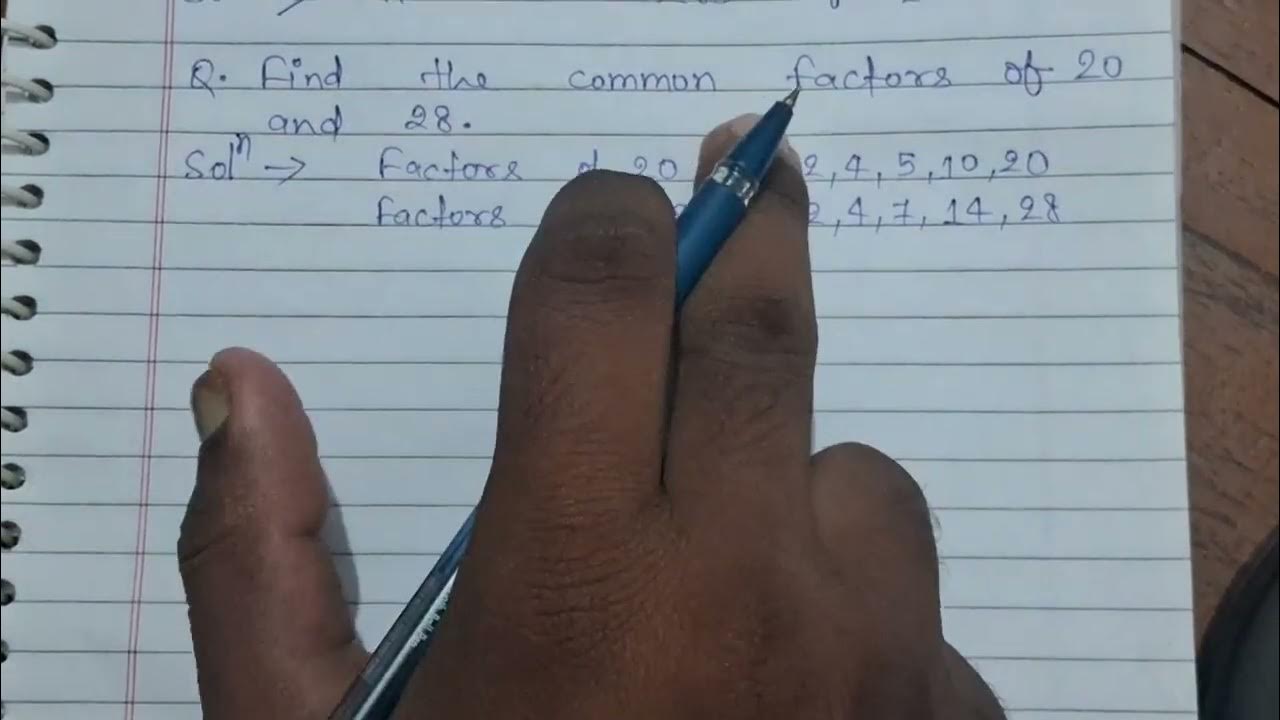 Q. Find the common factors of 20
and 28.
Solⁿ → Factors of 20 2, 4, 5, 10, 20
Factors 2, 4, 7, 14, 28